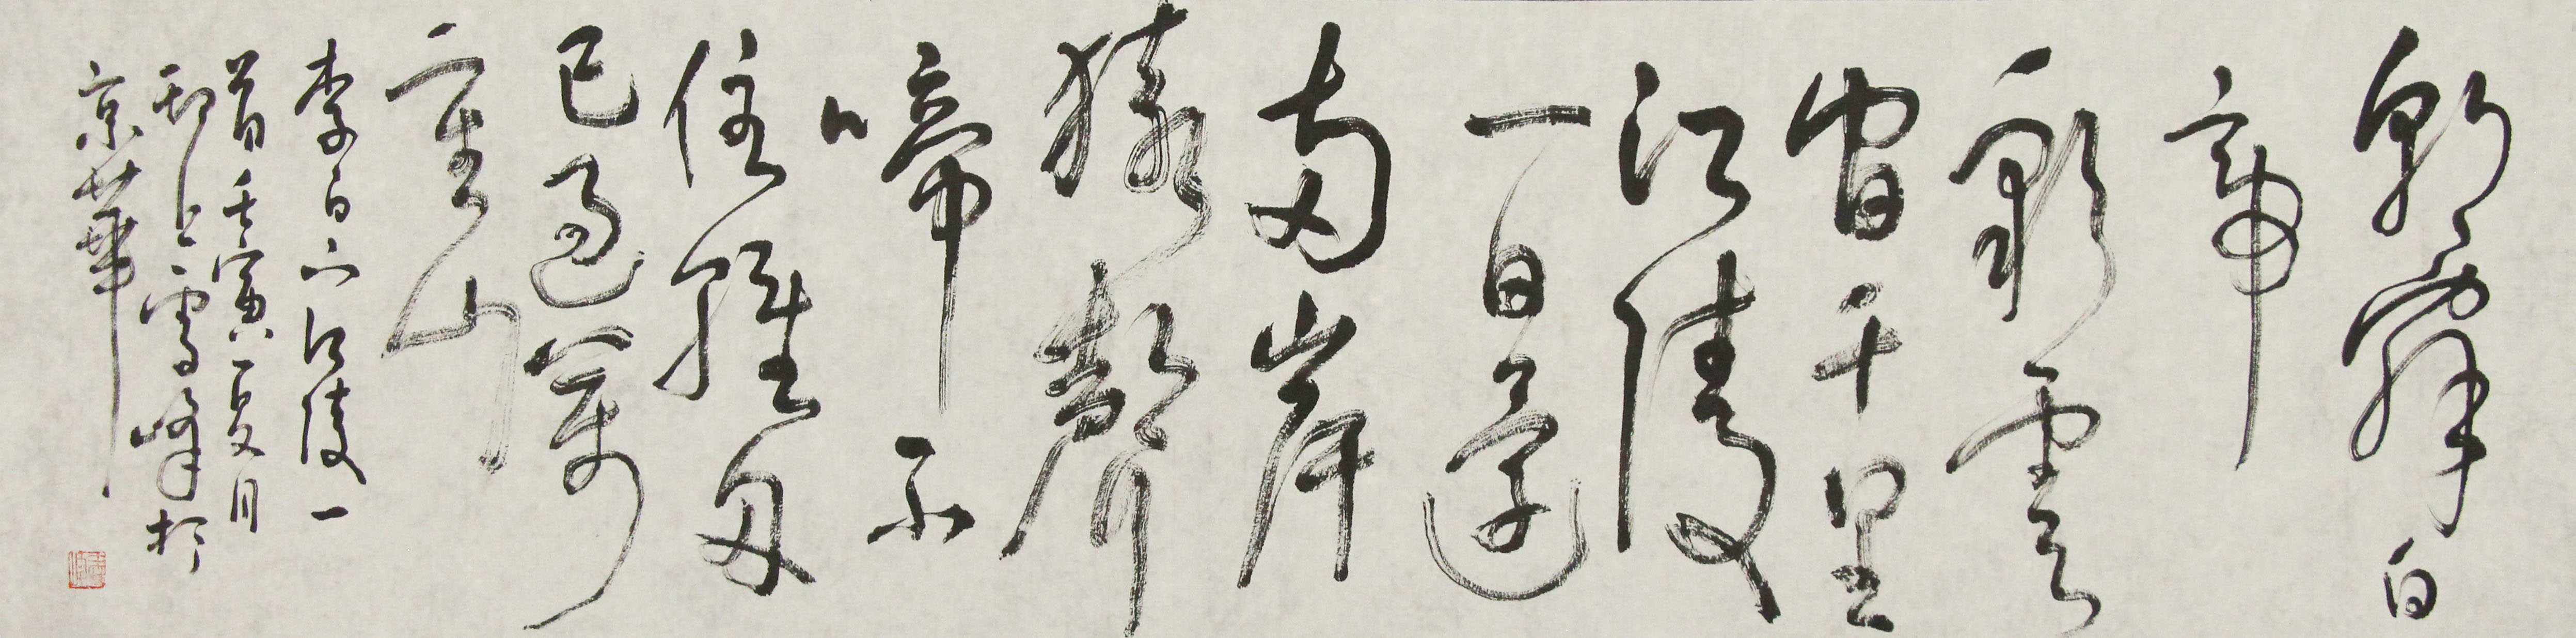 朝辭白
帝
彩雲
間千里
江陵
一日還
兩岸
猿聲
啼不
住輕舟
已過萬
重山
李白下江陵一
首壬寅夏月
邗上雪峰於
京華